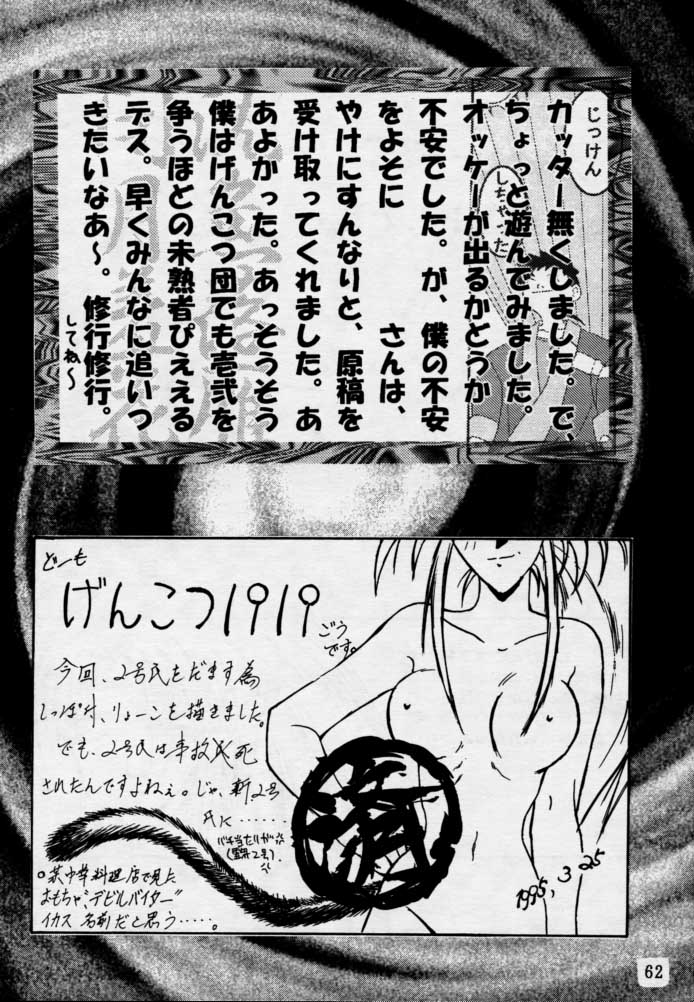 じっけん
しちゃった
カッター無くしました。で、
ちょっと遊んでみました。
オッケーが出るかどうか
不安でした。が、僕の不安
をよそに　　　さんは、
やけにすんなりと、原稿を
受け取ってくれました。あ
あよかった。あっそうそう
僕はげんこつ団でも壱弐を
争うほどの未熟者ぴええる
デス。早くみんなに追いつ
きたいなあ〜。修行修行。
してね〜
どーも
げんこつ1919
ごう
です。
今回、2号氏をだます為
しっぽ付、りょーこを描きました。
でも、2号氏は事故民死
されたんですよねぇ。じゃ、新2号
氏に……
バチ当たりが
済
。某中華料理店で見た
おもちゃ、“デビルバイター”
イカス名前だと思う……。
1995, 3, 25
62